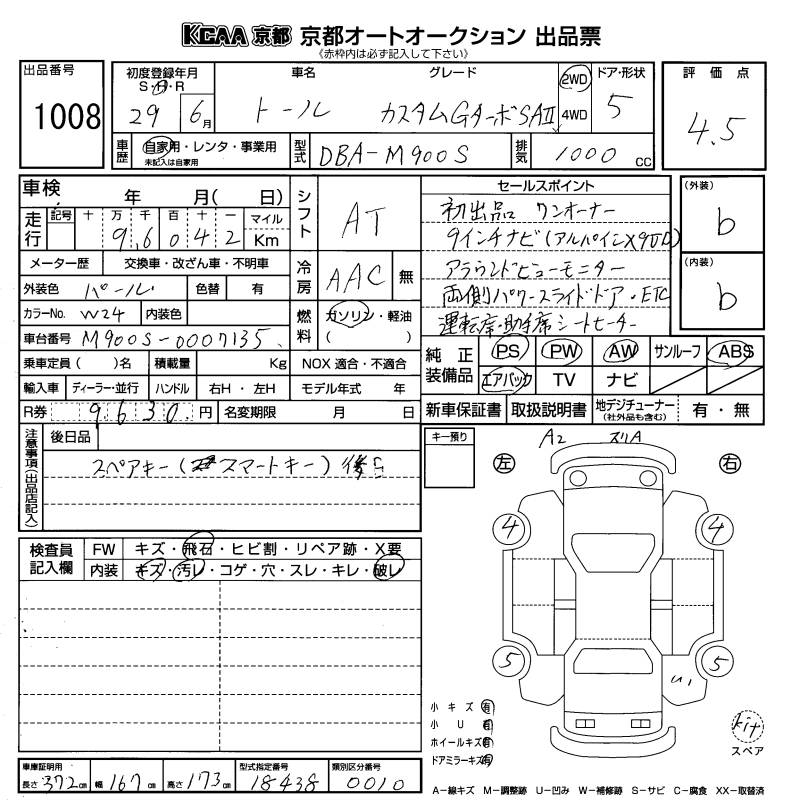 KCAA 京都 京都オートオークション 出品票
《赤枠内は必ず記入して下さい》
出品番号
1008
初度登録年月
S・H・R
29 6月
車名
トール
グレード
カスタムGターボSAⅡ
2WD
4WD
ドア・形状
5
評価点
4.5
車歴
自家用・レンタ・事業用
未記入は自家用
型式
DBA-M900S
排気
1000 cc
車検
年 月( 日)
走行
記号 十 万 千 百 十 一 マイル
9,6 0 4 2 Km
メーター歴 交換車・改ざん車・不明車
外装色 パール 色替 有
カラーNo. W24 内装色
車台番号 M900S-0007135
乗車定員( )名 積載量 Kg
輸入車 ディーラー・並行 ハンドル 右H・左H
R券 9630円 名変期限 月 日
シフト
AT
冷房
AAC 無
燃料
ガソリン・軽油
( )
NOX 適合・不適合
モデル年式 年
セールスポイント
初出品 ワンオーナー
9インチナビ(アルパインX9ⅡD)
アラウンドビューモニター
両側パワースライドドア・ETC
運転席・助手席シートヒーター
(外装)
b
(内装)
b
純正装備品
PS PW AW サンルーフ ABS
エアバック TV ナビ
新車保証書 取扱説明書 地デジチューナー 有・無
(社外品も含む)
注意事項(出品店記入)
後日品
スペアキー(スマートキー)後日
キー預り
A2 スリA
左 右
4 4
5 5
U1
検査員記入欄
FW キズ・飛石・ヒビ割・リペア跡・X要
内装 キズ・汚レ・コゲ・穴・スレ・キレ・破レ
小キズ 有
小U 有
ホイールキズ 有
ドアミラーキズ 有
kit
スペア
車庫証明用
長さ 372cm 幅 167cm 高さ 173cm
型式指定番号
18438
類別区分番号
0010
A-線キズ M-調整跡 U-凹み W-補修跡 S-サビ C-腐食 XX-取替済